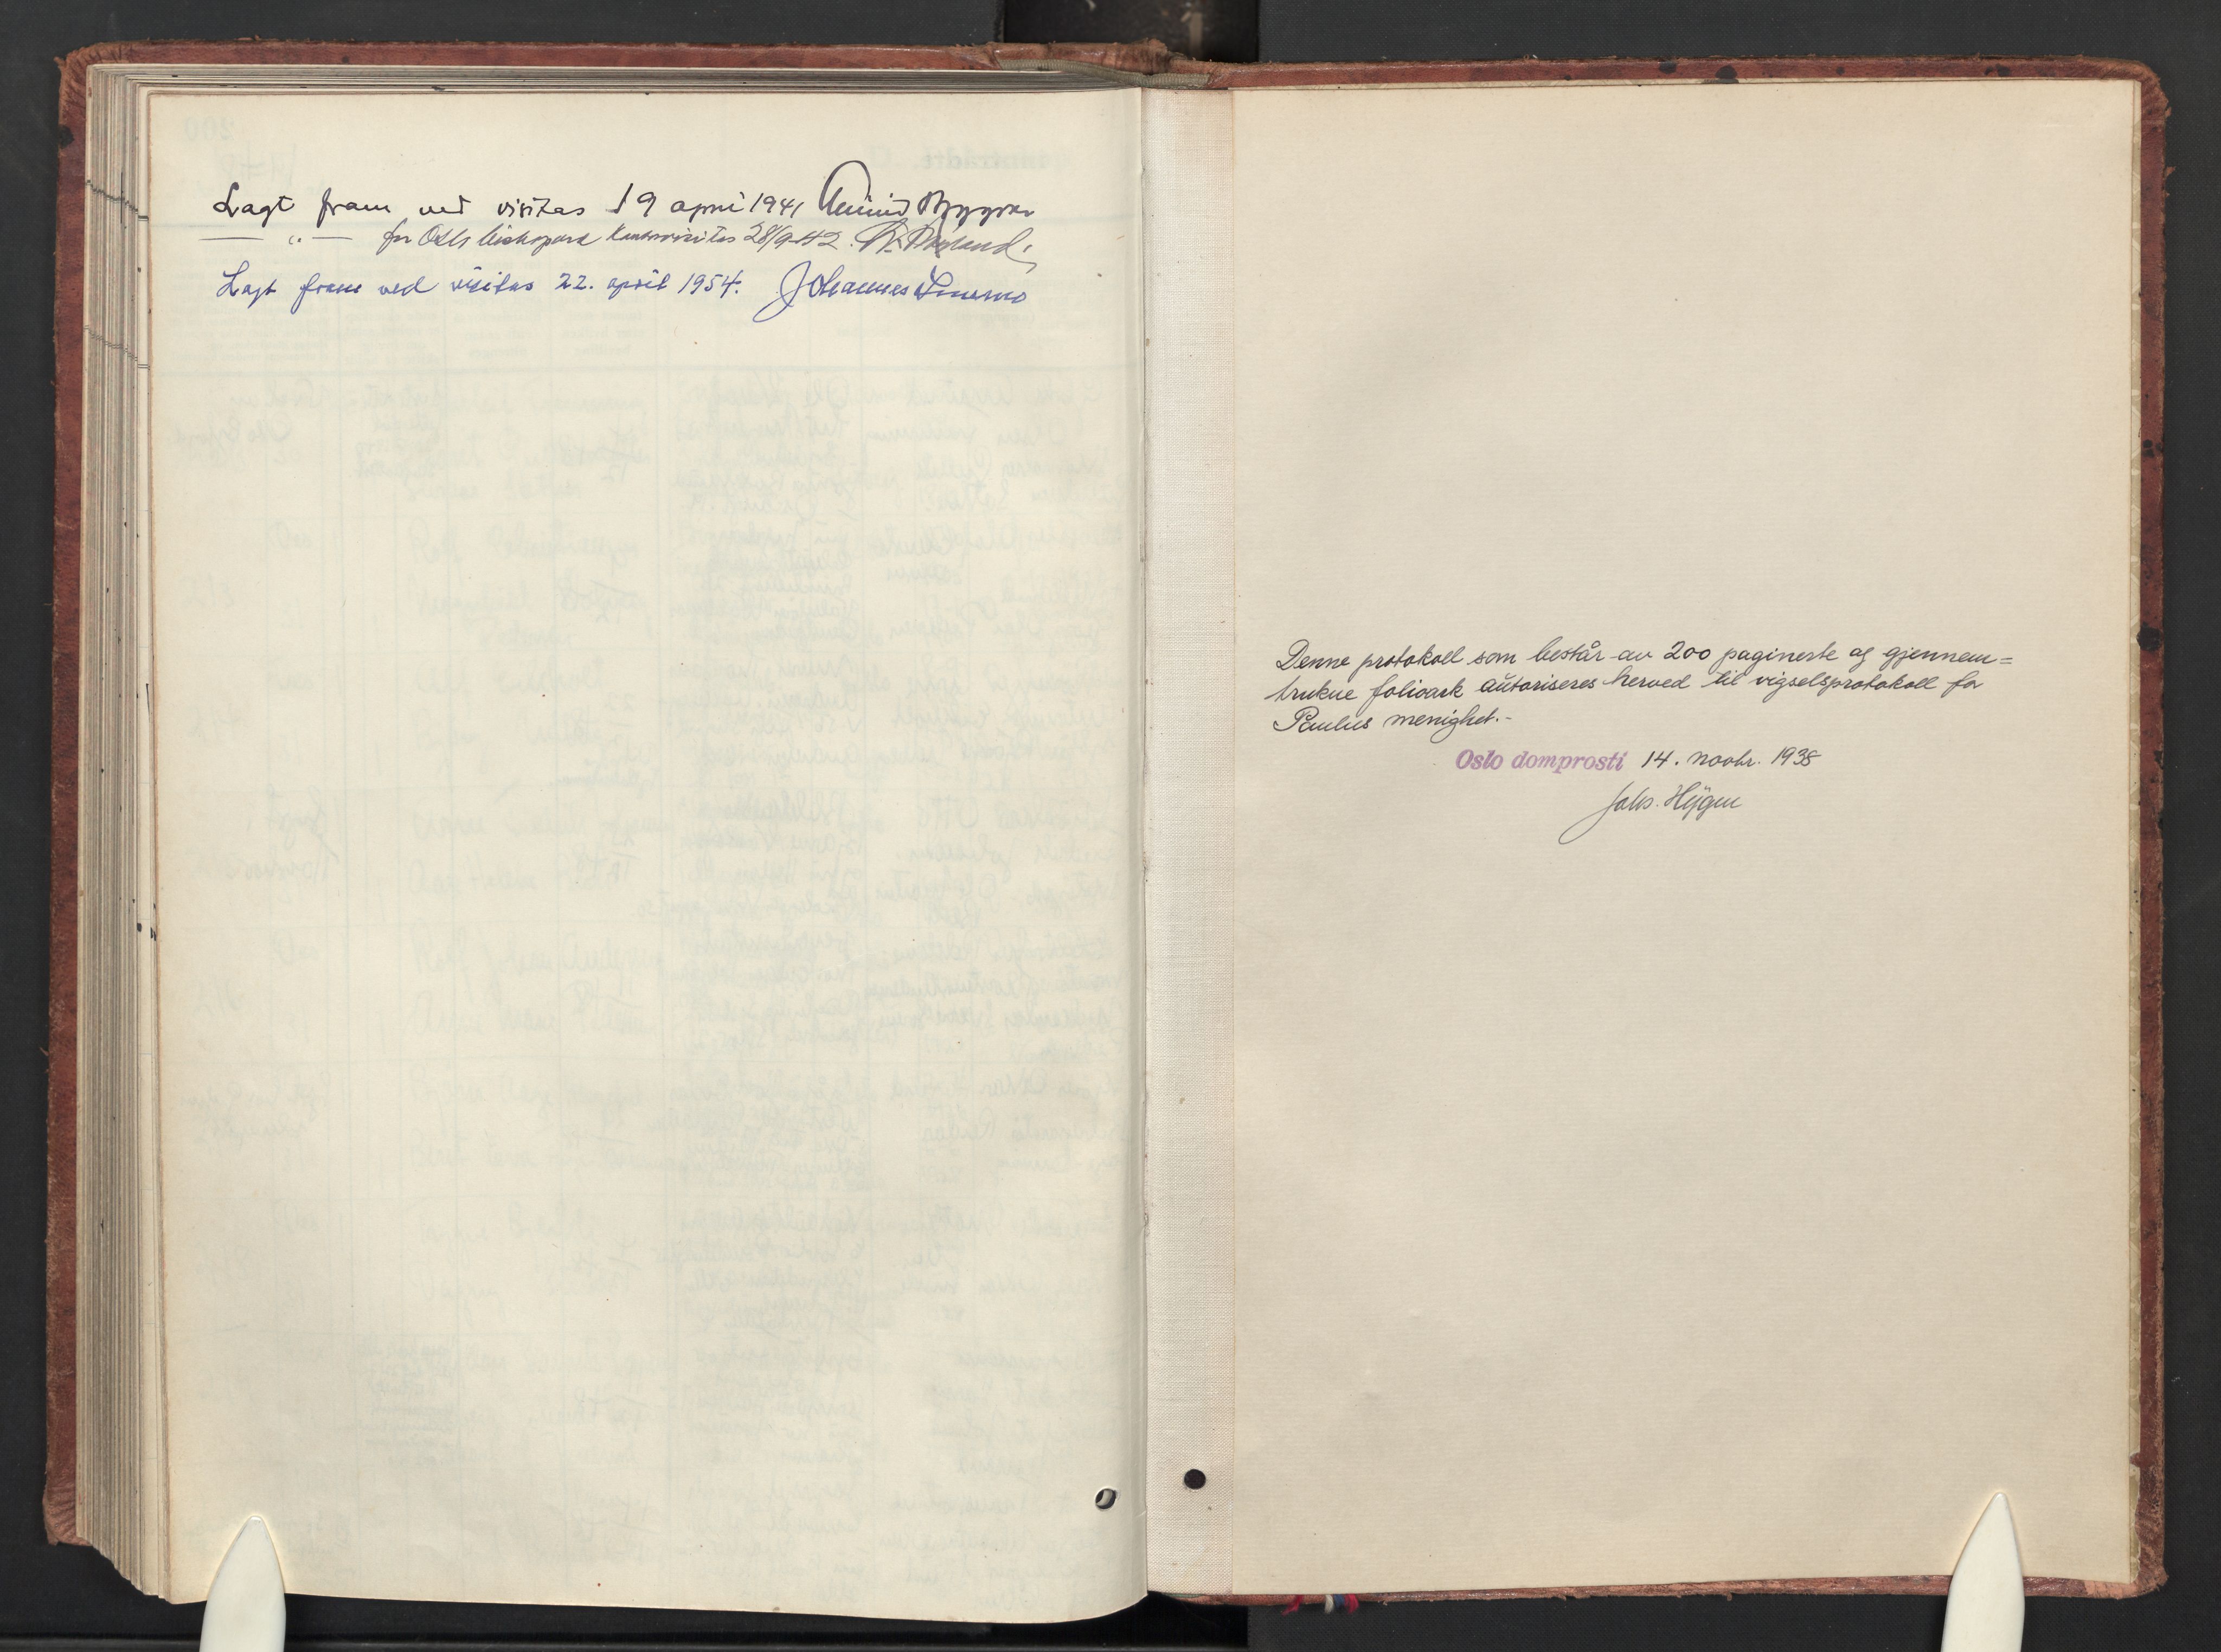 Lagt fram ved visitas 19 april 1941
— " — for Oslo biskops kontorvisitas 28/9-42.
Lagt fram ved visitas 22. april 1954. Johannes Smemo
Denne protokoll som består av 200 paginerte og gjennem=
trukne folioark autoriseres herved til vigselsprotokoll for
Paulus menighet.-
Oslo domprosti 14. novbr. 1938
Johs. Hygen